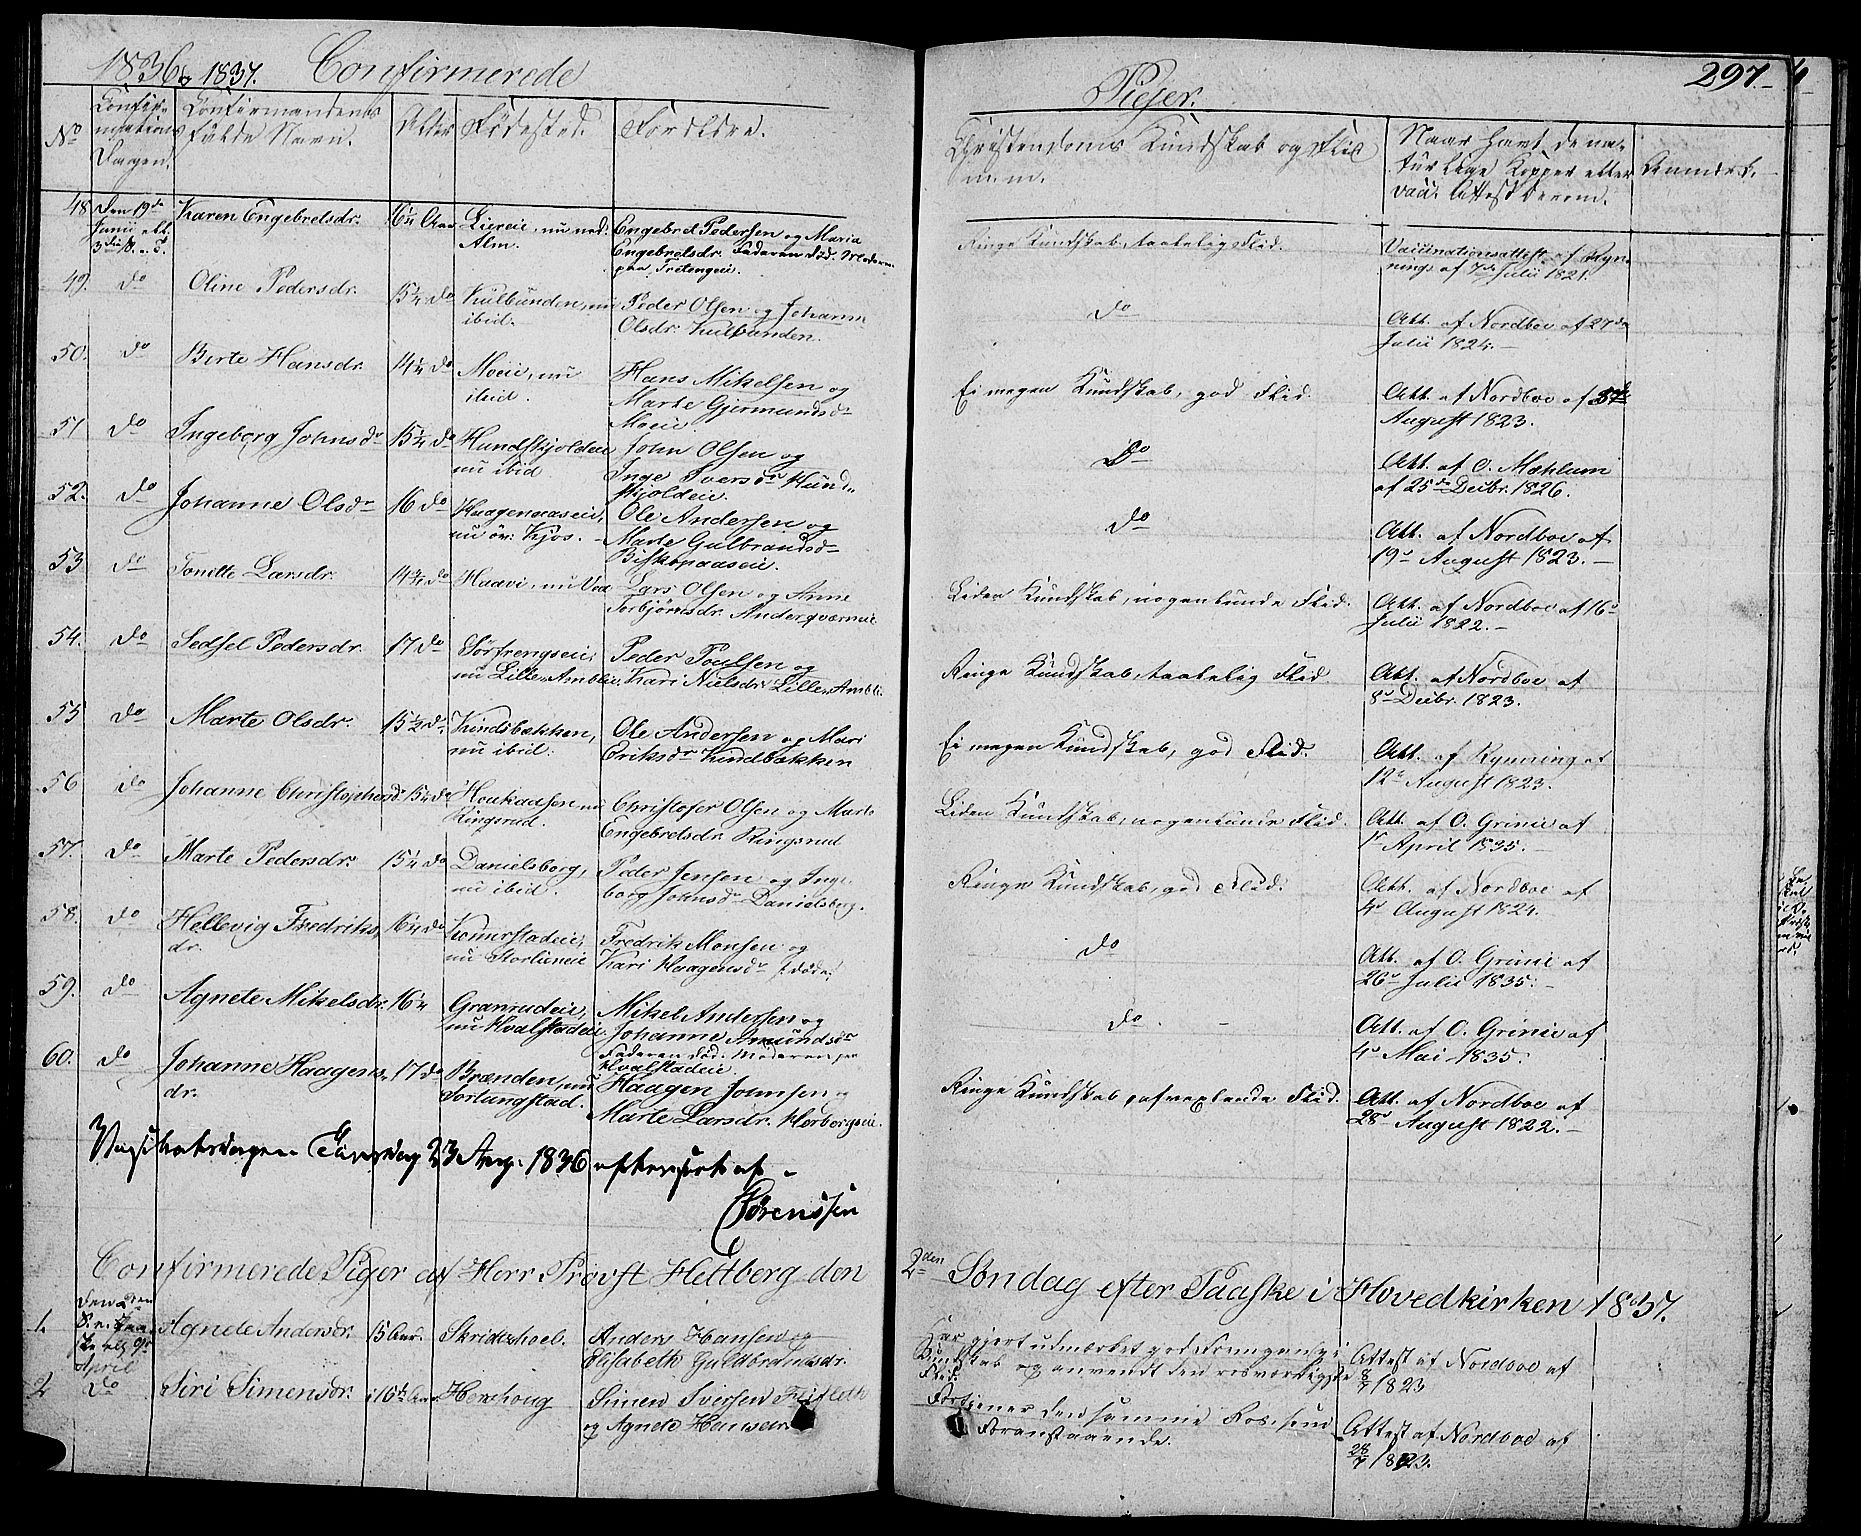 1836 & 1837. Confirmerede
Piger.
297.
No
Confir-
mations
Dagen.
Confirmandens
fulde Navn.
Alder
Fødested.
Forældre.
Christendoms Kundskab og Flid
m.m.
Naar havt de na-
turlige Kopper eller
vacc. Attest derom.
Anmærk.
48 Den 19de
Junii
Karen Engebretsdr. 16 1/4 Aar
Alm.
Engebret Pedersen og Maria
Engebretsdr. Faderen død. Moderen
paa Tretengeie.
Ringe Kundskab, taatelig Flid.
Vaccinationsattest af Ryn-
nings af 7de Julii 1821.
49. do Oline Pedersdr. 15 1/4 do Kulbunden, nu
ibid.
Peder Olsen og Johanne
Olsdr. Kulbunden.
do
Att. af Nordboe af 27de
Julii 1824.
50. do Berte Hansdr. 14 1/2 do Moeie, nu
ibid.
Hans Mikelsen og
Marte Gjermundsdr
Moeie
Ei megen Kundskab, god Flid.
Att. af Nordboe af
August 1823.
51 do Ingeborg Johnsdr 15 1/4 do Hundskjoldeie
nu ibid
John Olsen og
Inge Iversdr Hund-
skjoldeie.
do
Att. af O. Mæhlum
af 25de Decbr. 1826.
52. do Johanne Olsdr 16 do Haagenaaseie,
nu øv: Kjos.
Ole Andersen og
Marte Gulbrandsdr
Biskopaaseie.
do
Att. af Nordboe af
19de August 1823.
53 do Tonette Larsdr. 14 3/4 do Haavi, nu
Lars Olsen og Anne
Torbjørnsdr. Anderqværnie
Liden Kundskab, nogenlunde Flid.
Att. af Nordboe af 16de
Julii 1822.
54. do Sedsel Pedersdr. 17 do
nu Lille-Amblie
Peder Poulsen og
Kari Nielsdr. Lille-Ambli
Ringe Kundskab, taatelig Flid.
Att. af Nordboe af
8de Decbr. 1823.
55 do Marte Olsdr. 15 1/2 do. Kindsbækken,
nu ibid.
Ole Andersen og Mari
Eriksdr Kindbækken
Ei megen Kundskab, god Flid.
Att. af Rynning af
12te August 1823.
56 do Johanne Christophersd. 15 1/4 do
Ringsrud.
Christofer Olsen og Marte
Engebretsdr. Ringsrud
Liden Kundskab, nogenlunde Flid.
Att. af O. Grinie af
1ste April 1835.
57. do Marte Pedersdr. 15 1/4 do Danielsborg,
nu ibid.
Peder Jensen og Inge-
borg Johnsdr Danielsborg.
Ringe Kundskab, god Flid.
Att. af Nordboe af
4de August 1824.
58. do Hellevig Fredriks-
dr.
16 1/4 do
nu Storlieneie
Fredrik Monsen og
Kari Haagensdr (døde)
do
Att. af O. Grinie af
26de Julii 1835.
59. do Agnete Mikelsdr. 16 1/4 Granrudeie,
nu Hvalstadeie.
Mikel Andersen og
Johanne Amundsdr
Faderen død. Moderen paa
Hvalstadeie.
do
Att. af O. Grinie af
4de Mai 1835.
60. do Johanne Haagens-
dr.
17 do Brænden, nu
Sorlungstad.
Haagen Johnsen og
Marte Larsdr. Horborgseie.
Ringe Kundskab, afvexlende Flid.
Att. af Nordboe af
28de August 1822.
Visitatsdagen Tirsdag 23 Aug. 1836 efterseet af
Sørenssen
Confirmerede Piger af Herr Provst Heltberg den
2den Søndag efter Paaske i Hovedkirken 1837.
1. Den 2den
S. e. Paa-
ske 9de
April
Agnete Andersdr. 15 Aar. Skridshoel.
Anders Hansen og
Elisabeth Guldbrandsdr.
Har gjort udmærket god Fremgang i
Kundskab og anvendt den rosværdigste
Flid.
Attest af Nordboe af
8/7 1823
2 do Siri Simensdr. 16 1/2 Aar. Hershoug
Simen Iversen
og Agnete Hansdr
Fortjener den samme Roes som
Foranstaaende.
Attest af Nordboe af
28/7 1823.